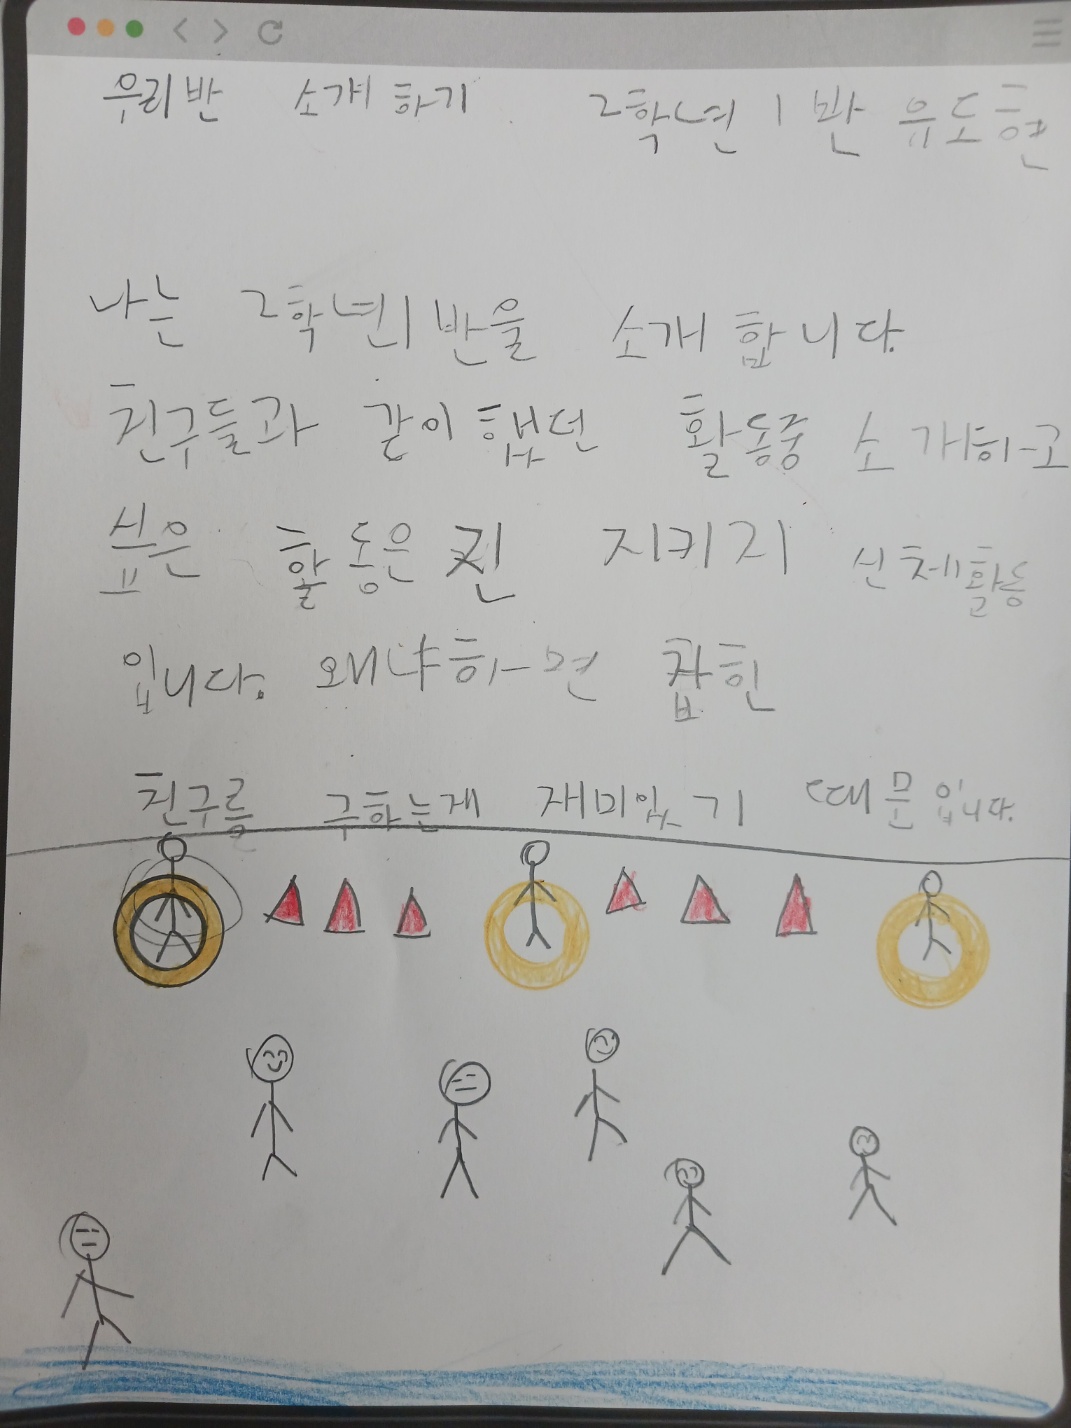 우리반 소개하기 2학년 1반 유도현
나는 2학년1반을 소개합니다.
친구들과 같이했던 활동중 소개하고
싶은 활동은 진 지키기 신체활동
입니다. 왜냐하면 잡힌
친구를 구하는게 재미있기 때문입니다.